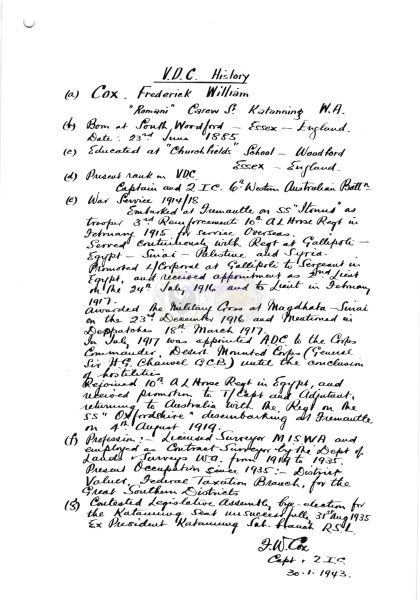 V.D.C. History
(a) Cox. Frederick William
"Romani" Carew St. Katanning W.A.
(b) Born at South Woodford – Essex – England.
Date: 23rd June 1885
(c) Educated at "Churchfields" School – Woodford
Essex – England.
(d) Present rank in VDC.
Captain and 2 I.C. 6th Western Australian Battn
(e) War Service 1914/18
Embarked at Fremantle on SS "Itonus" as
trooper 3rd Reinforcements 10th A L Horse Regt in
February 1915 for service Overseas.
Served continuously with Regt at Gallipoli –
Egypt – Sinai – Palestine and Syria.
Promoted L/Corporal at Gallipoli to Sergeant in
Egypt, and received appointment as 2nd Lieut
on the 24th July, 1916 and to Lieut in February
1917.
Awarded the Military Cross at Magdhaba – Sinai
on the 23rd December 1916 and Mentioned in
Despatches 18th March 1917.
In July 1917 was appointed ADC to the Corps
Commander, Desert Mounted Corps (General
Sir H.G. Chauvel G.C.B) until the conclusion
of hostilities.
Rejoined 10th A L Horse Regt in Egypt, and
received promotion to T/Capt and Adjutant,
returning to Australia with the Regt on the
SS "Oxfordshire" disembarking at Fremantle
on 4th August 1919.
(f) Profession:- Licensed Surveyor MISWA and
employed as Contract Surveyor by the Dept of
Lands & Surveys W.A. from 1919 to 1935
Present Occupation since 1935:- District
Valuer, Federal Taxation Branch, for the
Great Southern Districts
(g) Contested Legislative Assembly bye-election for
the Katanning Seat unsuccessfully 31st Aug 1935
Ex President Katanning Sub. branch RSL.
F.W. Cox
Capt. 2 I.C.
30.1.1943.